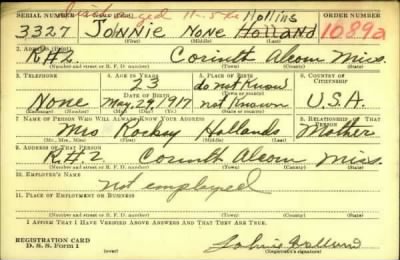 SERIAL NUMBER ORDER NUMBER
Hollins
3327 JONNIE NONE HOLLAND 1089a
(First) (Middle) (Last)
R#2. Corinth Alcorn Miss.
(Number and street or R. F. D. number) (Town) (County) (State)
3. TELEPHONE 4. AGE IN YEARS 5. PLACE OF BIRTH 6. COUNTRY OF CITIZENSHIP
23 do not Know
DATE OF BIRTH (Town or county)
None May. 29, 1917 not Known U.S.A.
(Exchange) (Number) (Mo.) (Day) (Yr.) (State or country)
7. NAME OF PERSON WHO WILL ALWAYS KNOW YOUR ADDRESS 8. RELATIONSHIP OF THAT PERSON
Mrs Hollands Mother
(Mr., Mrs., Miss) (First) (Middle) (Last)
9. ADDRESS OF THAT PERSON
R.#.2. Corinth Alcorn Miss.
(Number and street or R. F. D. number) (Town) (County) (State)
10. EMPLOYER'S NAME
Not employed
11. PLACE OF EMPLOYMENT OR BUSINESS
(Number and street or R. F. D. number) (Town) (County) (State)
I AFFIRM THAT I HAVE VERIFIED ABOVE ANSWERS AND THAT THEY ARE TRUE.
REGISTRATION CARD
D. S. S. Form 1 (Registrant's signature)